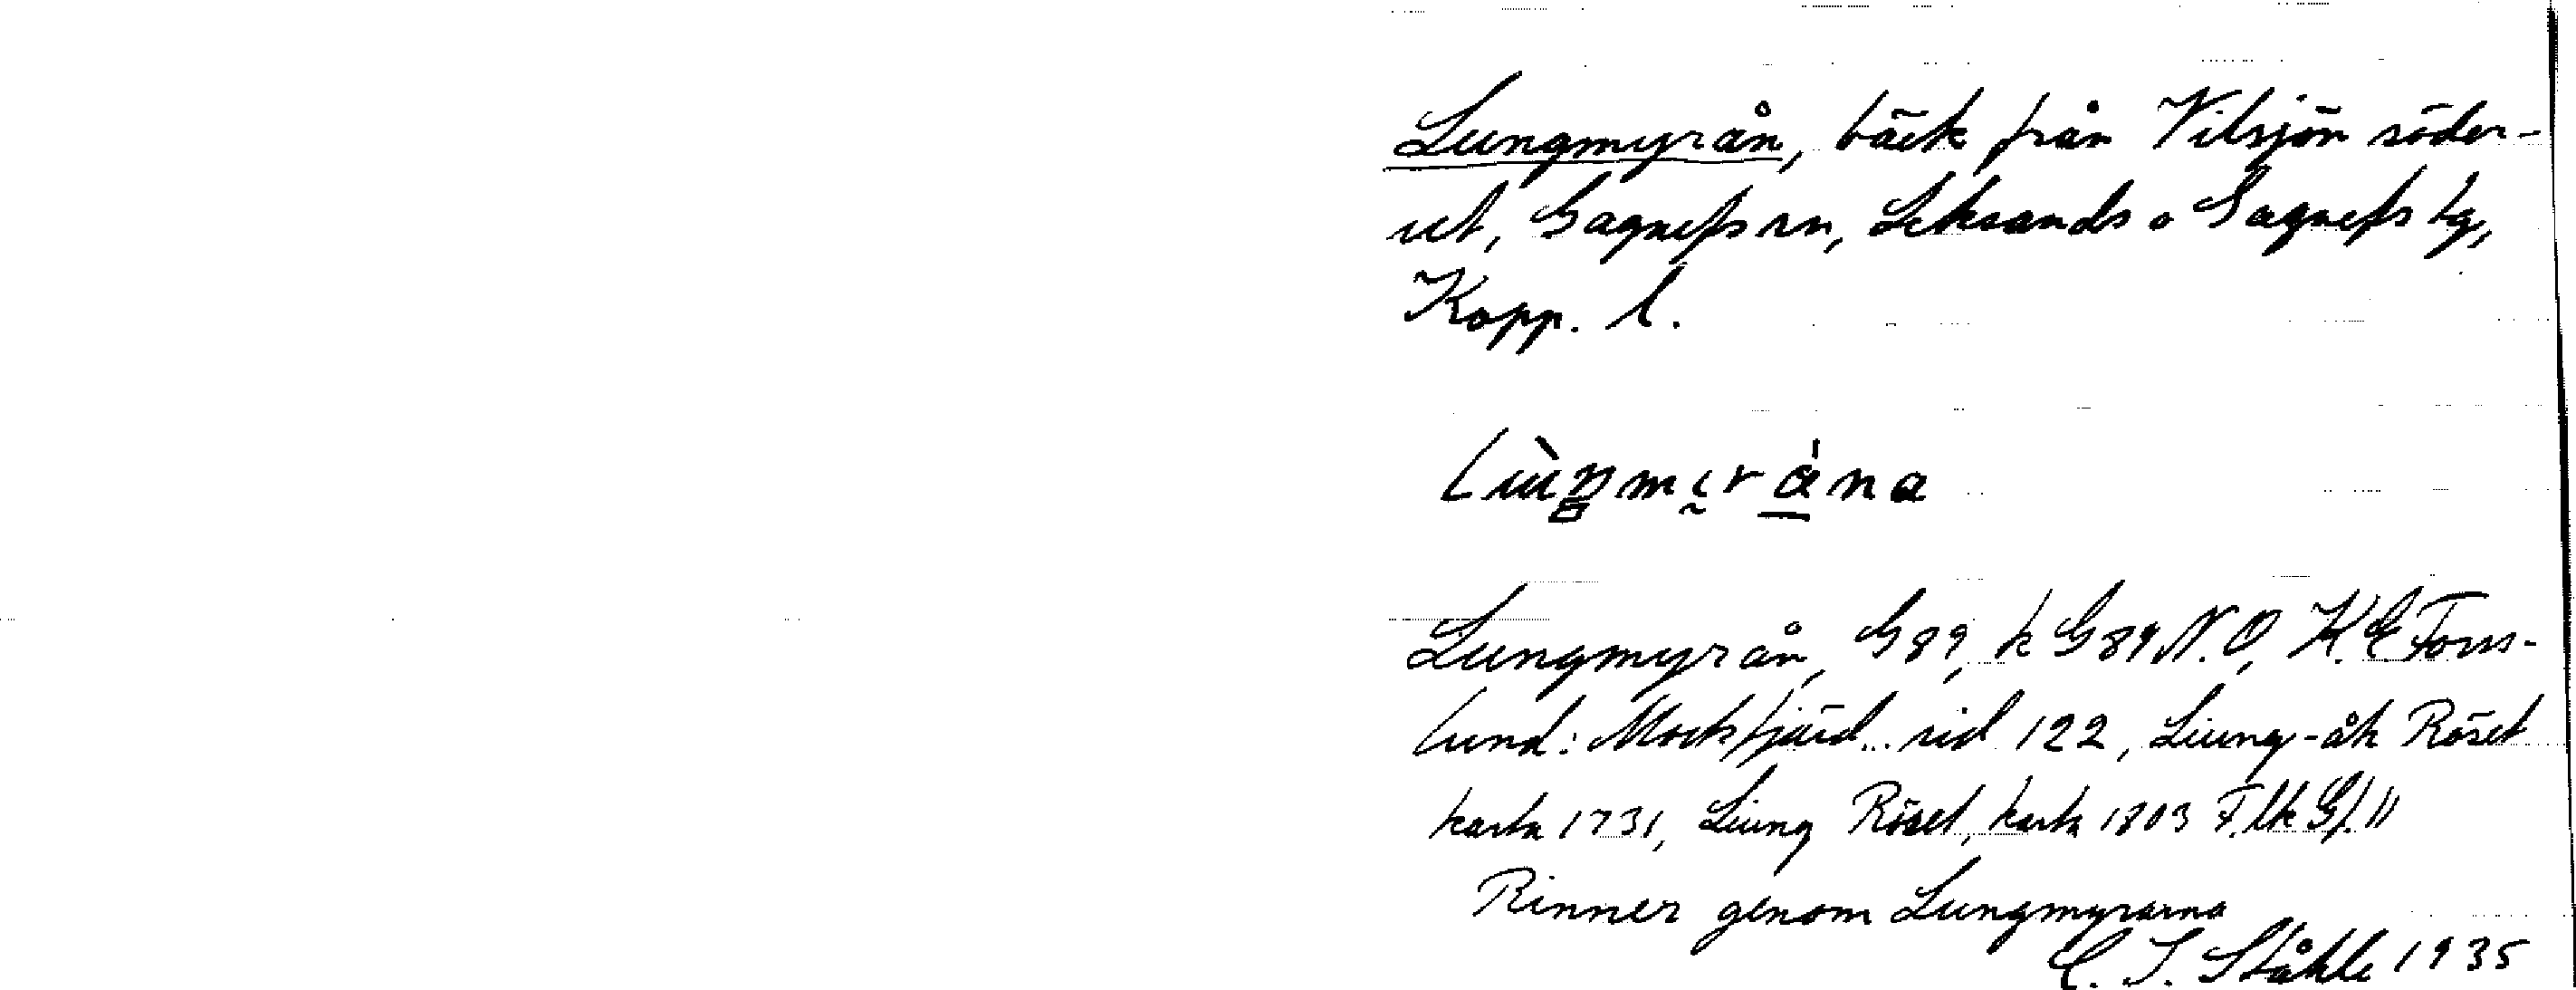 Lungmyrån, bäck från Vilsjön söder-
ut, Gagnefs sn, Leksands o Gagnefs tg,
Kopp. l.
Lungmyrån, G89, k G89 N.O, K.E Fors-
lund: Mockfjärd... sid 122, Liung-åk Röset
karta 1731, Liung Röset, karta 1803 F.lk Gf. 11
Rinner genom Lungmyrarna
C. I. Ståhle 1935